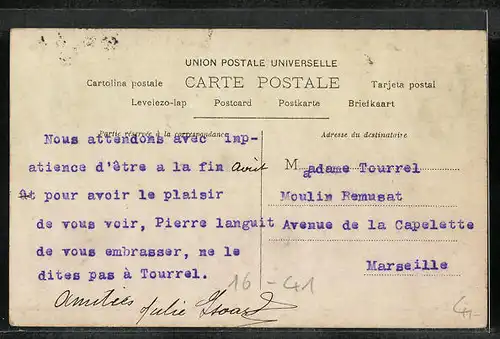 UNION POSTALE UNIVERSELLE
Cartolina postale CARTE POSTALE Tarjeta postal
Levelezo-lap Postcard Postkarte Briefkaart
Partie réservée à la correspondance
Adresse du destinataire
Nous attendons avec imp-
atience d'être a la fin Avût
ût pour avoir le plaisir
de vous voir, Pierre languit
de vous embrasser, ne le
dites pas à Tourrel.
Amitiés Julie Isoard
Madame Tourrel
Moulin Remusat
Avenue de la Capelette
Marseille
16 - 41